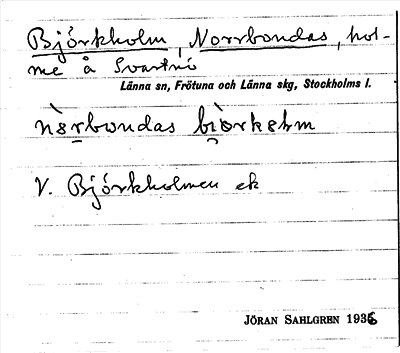 Björkholm, Norrbondas, hol-
me å Svartnö
Länna sn, Frötuna och Länna skg, Stockholms l.
nɷ̀rbɷndas bjɷ̀rkɷlm
V. Björkholmen ek
JÖRAN SAHLGREN 1936